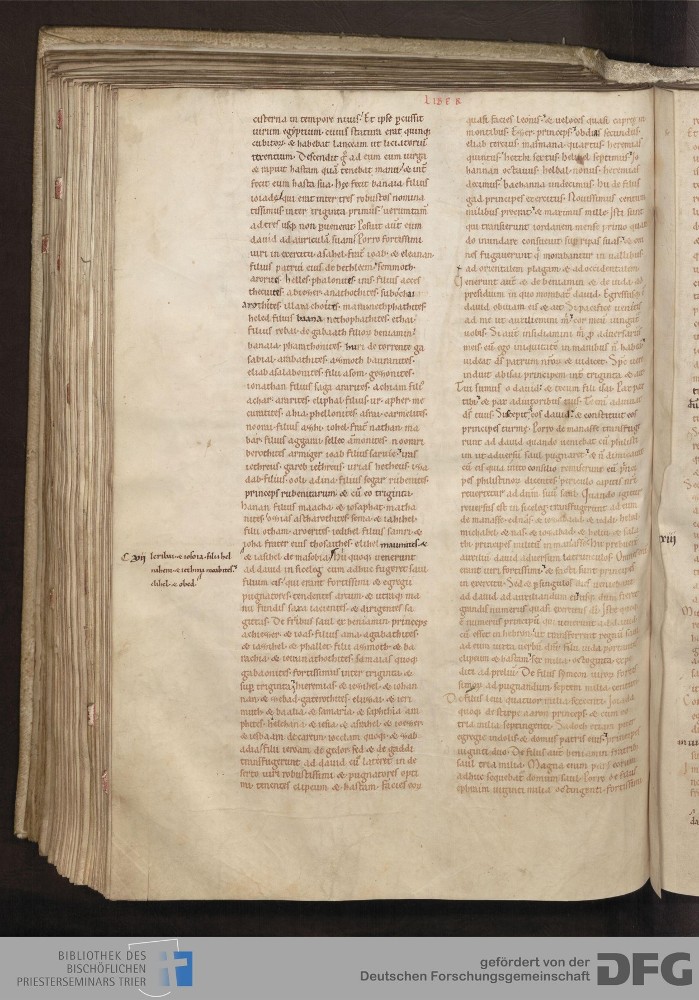 LIBER
cisterna in tempore niuis. Et ipse pcussit
uirum egyptium. cuius statura erat quinq;
cubitorū. & habebat lanceam ut liciatoriū
texentium. Descendit
& rapuit hastam quā tenebat manu. &
fecit eum hasta sua. Hęc fecit banaia filius
ioiade. qui erat inter tres robustos nomina
tissimus inter triginta primus. uerumtam̄
ad tres usq; non puenerat. Posuit aut̄ eum
dauid ad auriculā suam. Porro fortissimi
uiri in exercitu. asahel frat̄ ioab. & eleanan
filius patrui eius de bethleem. semmoth
arorites. helles phalonites. iras filius acces
thecuites. abiezer anathothites. sobochai
husathites
heled filius baana nethophathites. ethai
filius rebai de gabaath filiorū beniamin.
banaia pharathonites. huri de torrente ga
as. abihel arabathites. azmoth bauramites.
eliab asalabonites. filii asom gezonites.
ionathan filius saga ararites. achiam filius
achar ararites. eliphal filius ur. apher me
curatites. ahia phellonites. asrai carmelites.
noorai filius asbi. iohel frat̄ nathan. ma
bar filius aggarai. sellec āmonites. noorai
berothites armiger ioab filii saruie. iras
iethreus. gareb iethreus. urias hetheus.
filius ooli. adina filius segar rubenites
princeps rubenitarum & cū eo triginta.
hanan filius maacha. & iosaphat matha
nites. ozias astharothites. sema. & iahihel
filii otham aroerites. iedihel filius samri. &
ioha frater eius thosaithes. elihel maumites. &
ieribai. & iosaia. filii hel
nahem. & iethma moabites.
elihel. & obed
& iasihel de masobia. Hii quoq; uenerunt
ad dauid in siceleg cum adhuc fugeret saul
filium cis. qui erant fortissimi & egregii
pugnatores. tendentes arcum. & utraq; ma
nu fundis saxa iacientes. & dirigentes sa
gittas. De fr̄ibus saul ex beniamin. princeps
achiezer. & ioas filius ama gabathites.
& iazihel. & phallet filii azmoth. & ba
rachia. & ieu anathothites. samaias quoq;
gabaonites. fortissimus inter triginta. &
sup triginta. hieremias. & iezihel. & iohan
nan. & iezbad gaderothites. elusai. & ieri
muth. & baalia. & samaria. & saphatia aru
phites. helchana & iesia. & azrahel. & ioezer.
& iesbaam de carehim. ioelam quoq; & zab
adia filii ieroam de gedor. sed & de gaddi
transfugerunt ad dauid cū lateret in de
serto. uiri robustissimi & pugnatores opti
mi. tenentes clipeum & hastam. facies eorū
quasi facies leonis. & ueloces quasi capreę in
montibus. Ezer princeps. obdias secundus.
eliab tercius. masmana quartus. hieremias
quintus. hethi sextus. helihel septimus. io
hannan octauus. helbad nonus. hieremias
decimus. bachanna undecimus. Hii de filiis
gad principes exercitus. Nouissimus centum
militibus preerat. & maximus mille. Isti sunt
qui transierunt iordanem mense primo quan
do inundare consueuit sup ripas suas. & om
nes fugauerunt qui morabantur in uallibus
ad orientalem plagam & ad occidentalem.
Uenerunt aut̄ & de beniamin. & de iuda ad
presidium in quo morabat̄ dauid. Egressusq;
dauid obuiam eis & ait. Si pacifice uenistis
ad me ut auxiliemini m̄. cor meū iungat̄
uobis. Si aut̄ insidiamini m̄ p aduersariis
meis. cū ego iniquitatē in manibus n̄ habeā.
uideat d̄s patrum nr̄orū & iudicet.
induit abisai principem int̄ triginta. & ait.
Tui sumus o dauid. & tecum fili isai. Pax pax
tibi. & pax adiutoribus tuis. Te enī adiuuat
d̄s tuus. Suscepit g̊ eos dauid. & constituit eos
principes turmę. Porro de manasse transfuge
runt ad dauid quando ueniebat cū philistiim
ut aduersū saul pugnaret. & n̄ dimicauit
cū eis. quia inito consilio remiserunt eū prīci
pes philistinorū dicentes. periculo capitis nr̄i
reuertetur ad dn̄m suū saul. Quando igitur
reuersus est in siceleg. transfugerunt ad eum
de manasse. ednas & iozabad & iedihel. &
michahel. & nas. & iozabad. & heliu. & sala
thi. principes militū in manasse. Hii prebuerunt
auxiliū dauid aduersum latrunculos. Omnes enī
erant uiri fortissimi. & facti sunt principes
in exercitu. Sed & p singulos dies ueniebant
ad dauid ad auxiliandum ei. usq; dum fieret
grandis numerus quasi exercitus dī. Iste quoq;
ē numerus principū qui uenerunt ad dauid
cū esset in hebron. ut transferrent regnū saul
ad eum iuxta uerbū dn̄i. filii iuda portantes
clipeum & hastam. sex milia & octingenti. expe
diti ad prelium. De filiis symeon uirorū fortis
simorū ad pugnandum. septem milia centum.
De filiis leui. quatuor milia sexcenti. Ioiada
quoq; de stirpe aaron princeps. & cum eo
tria milia septingenti. Sadoch etiam puer
egregię indolis. & domus patris eius principes
uiginti duo. De filiis aut̄ beniamin fratribus
saul tria milia. Magna enim pars eorum
adhuc sequebat̄ domum saul. Porro de filiis
ephraim uiginti milia & octingenti. fortissimi
BIBLIOTHEK DES
BISCHÖFLICHEN
PRIESTERSEMINARS TRIER
gefördert von der
Deutschen Forschungsgemeinschaft
DFG